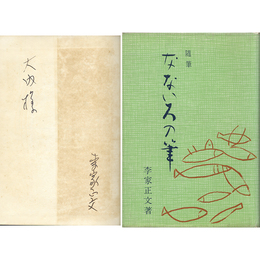 大内様
李家正文
随筆
なないろの筆
李家正文著